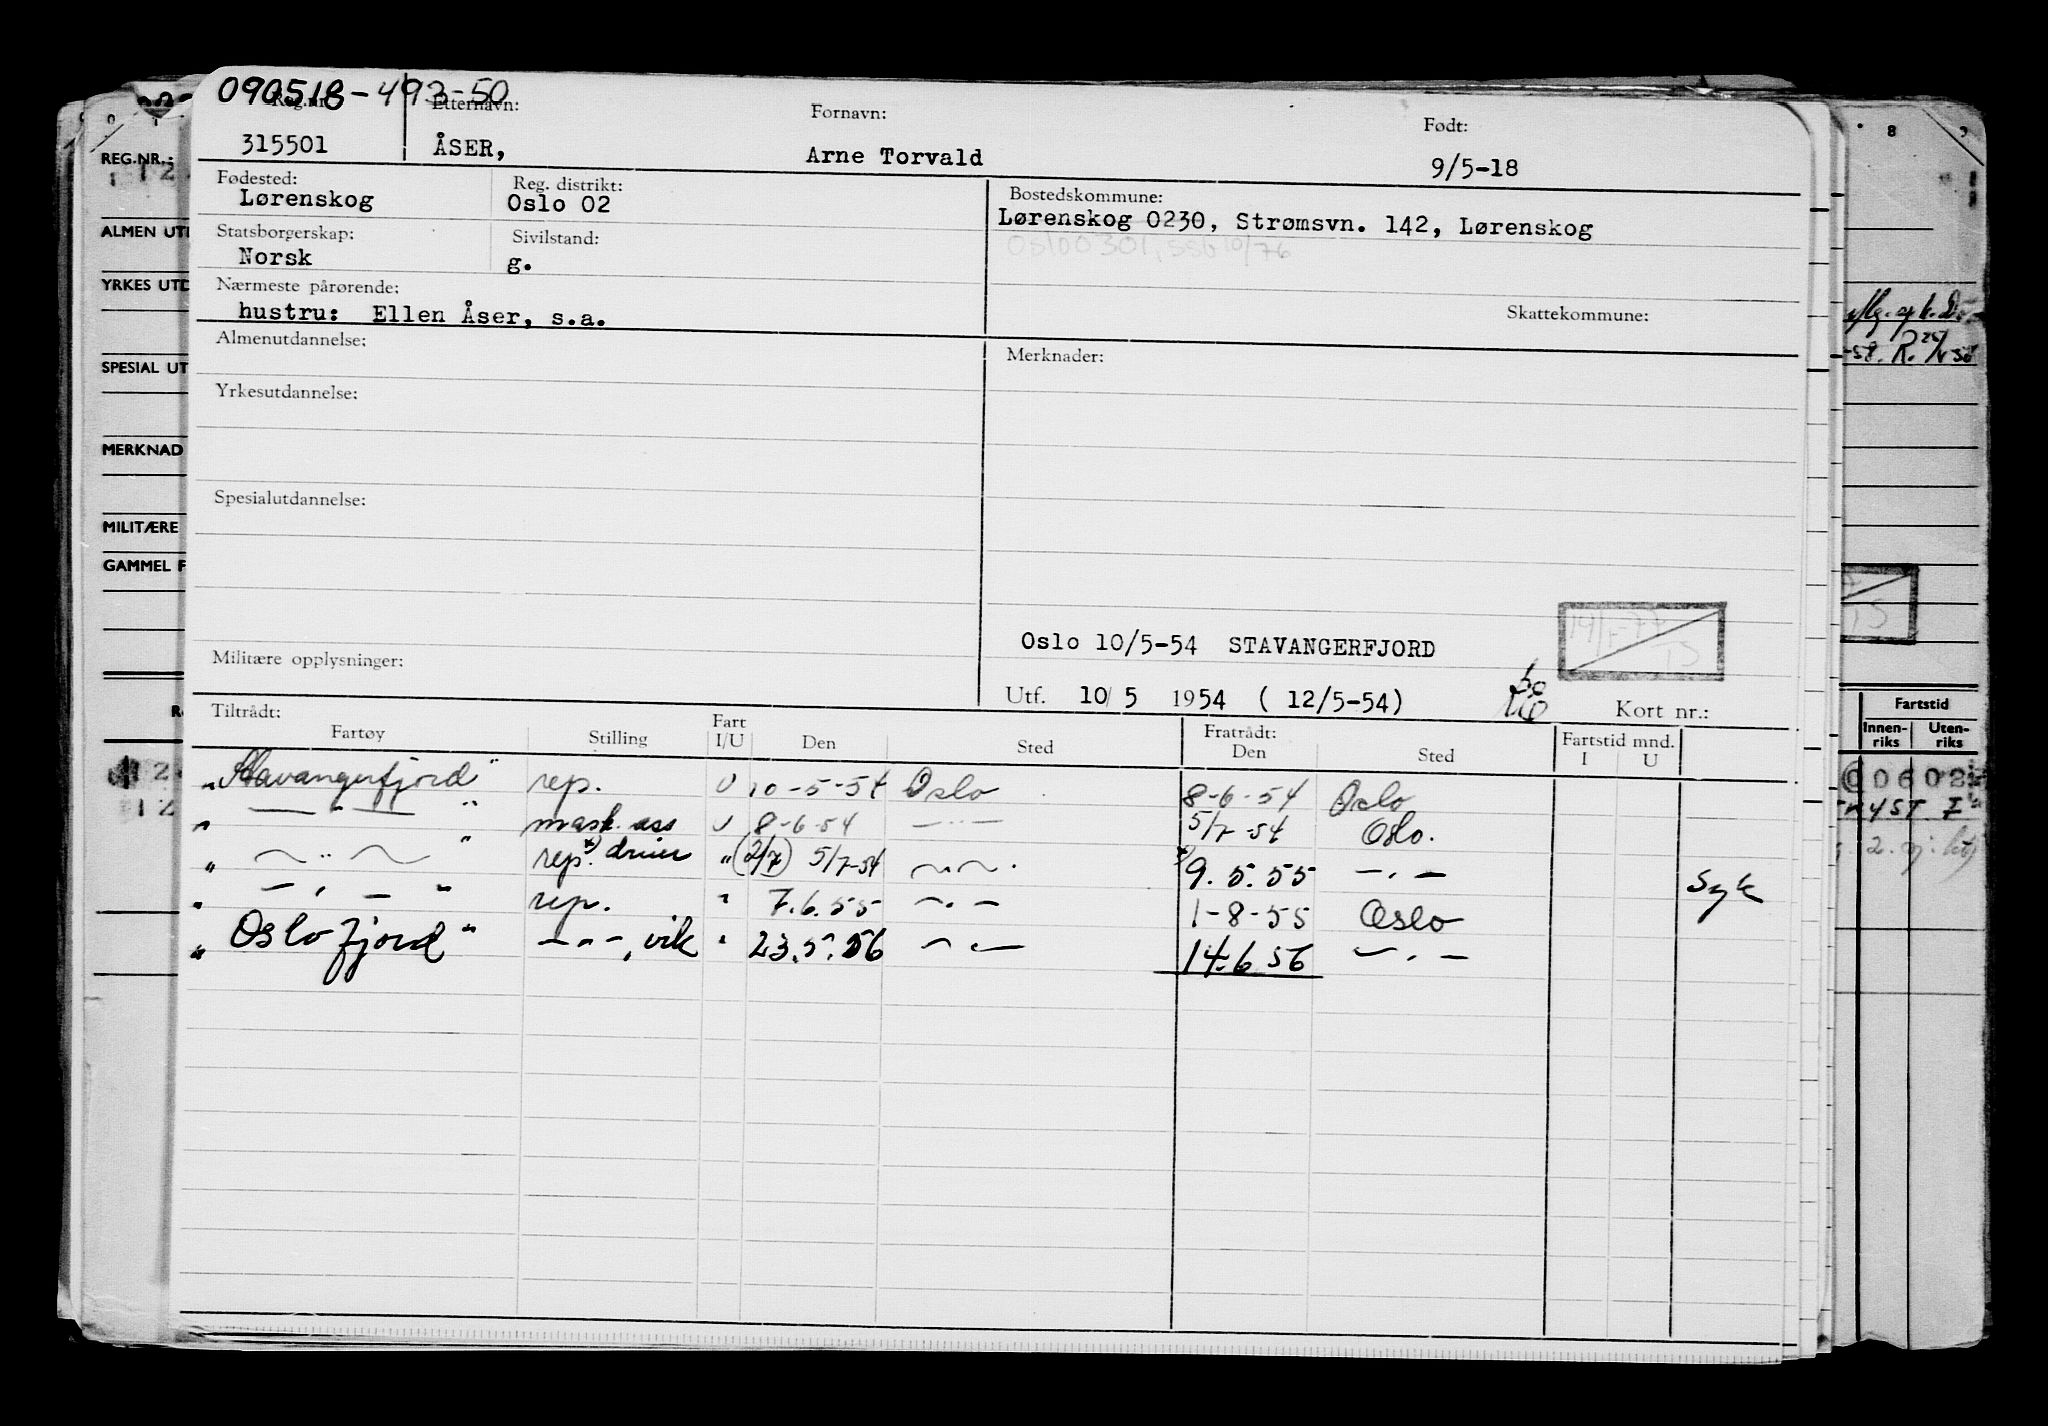 090518-493-50
Reg.nr. Etternavn: Fornavn: Født:
315501 ÅSER, Arne Torvald 9/5-18
Fødested: Reg. distrikt: Bostedskommune:
Lørenskog Oslo 02 Lørenskog 0230, Strømsvn. 142, Lørenskog
Statsborgerskap: Sivilstand: Oslo 0301, SSB 10/76
Norsk g.
Nærmeste pårørende: Skattekommune:
hustru: Ellen Åser, s.a.
Almenutdannelse: Merknader:
Yrkesutdannelse:
Spesialutdannelse:
Oslo 10/5-54 STAVANGERFJORD
Militære opplysninger:
Utf. 10/5 1954 ( 12/5-54) Kort nr.:
Tiltrådt: Fratrådt:
Fartøy Stilling Fart I/U Den Sted Den Sted Fartstid mnd. I U
"Stavangerfjord" rep. U 10-5-54 Oslo 8-6-54 Oslo
" — " — " mask. ass U 8-6-54 — " — 5/7-54 Oslo.
" — " — " rep. x) driver " (2/7) 5/7-54 — " — . x) 9.5.55 — " — Syk
" — " — " rep. " 7.6.55 — " — 1-8-55 Oslo
"Oslofjord" — " —, vik " 23.5.56 — " — 14.6.56 — " —
REG.NR.:
ALMEN UTD
YRKES UTD
SPESIAL UT
MERKNAD
MILITÆRE
GAMMEL F
8 9
Fartstid
Innenriks Utenriks